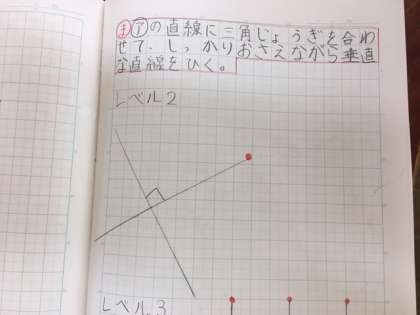 ま アの直線に三角じょうぎを合わ
せて、しっかりおさえながら垂直
な直線をひく。
レベル2
レベル3